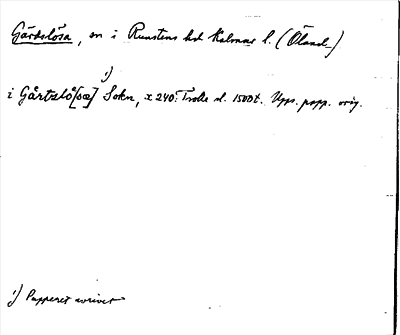 Gärdslösa, sn i Runstens hd Kalmar l. (Öland)
1)
i Gårtzlö[sæ] Sokn, x 240: Trolle sl. 1500t. Upps. papp. orig.
1) Papperet avrivet